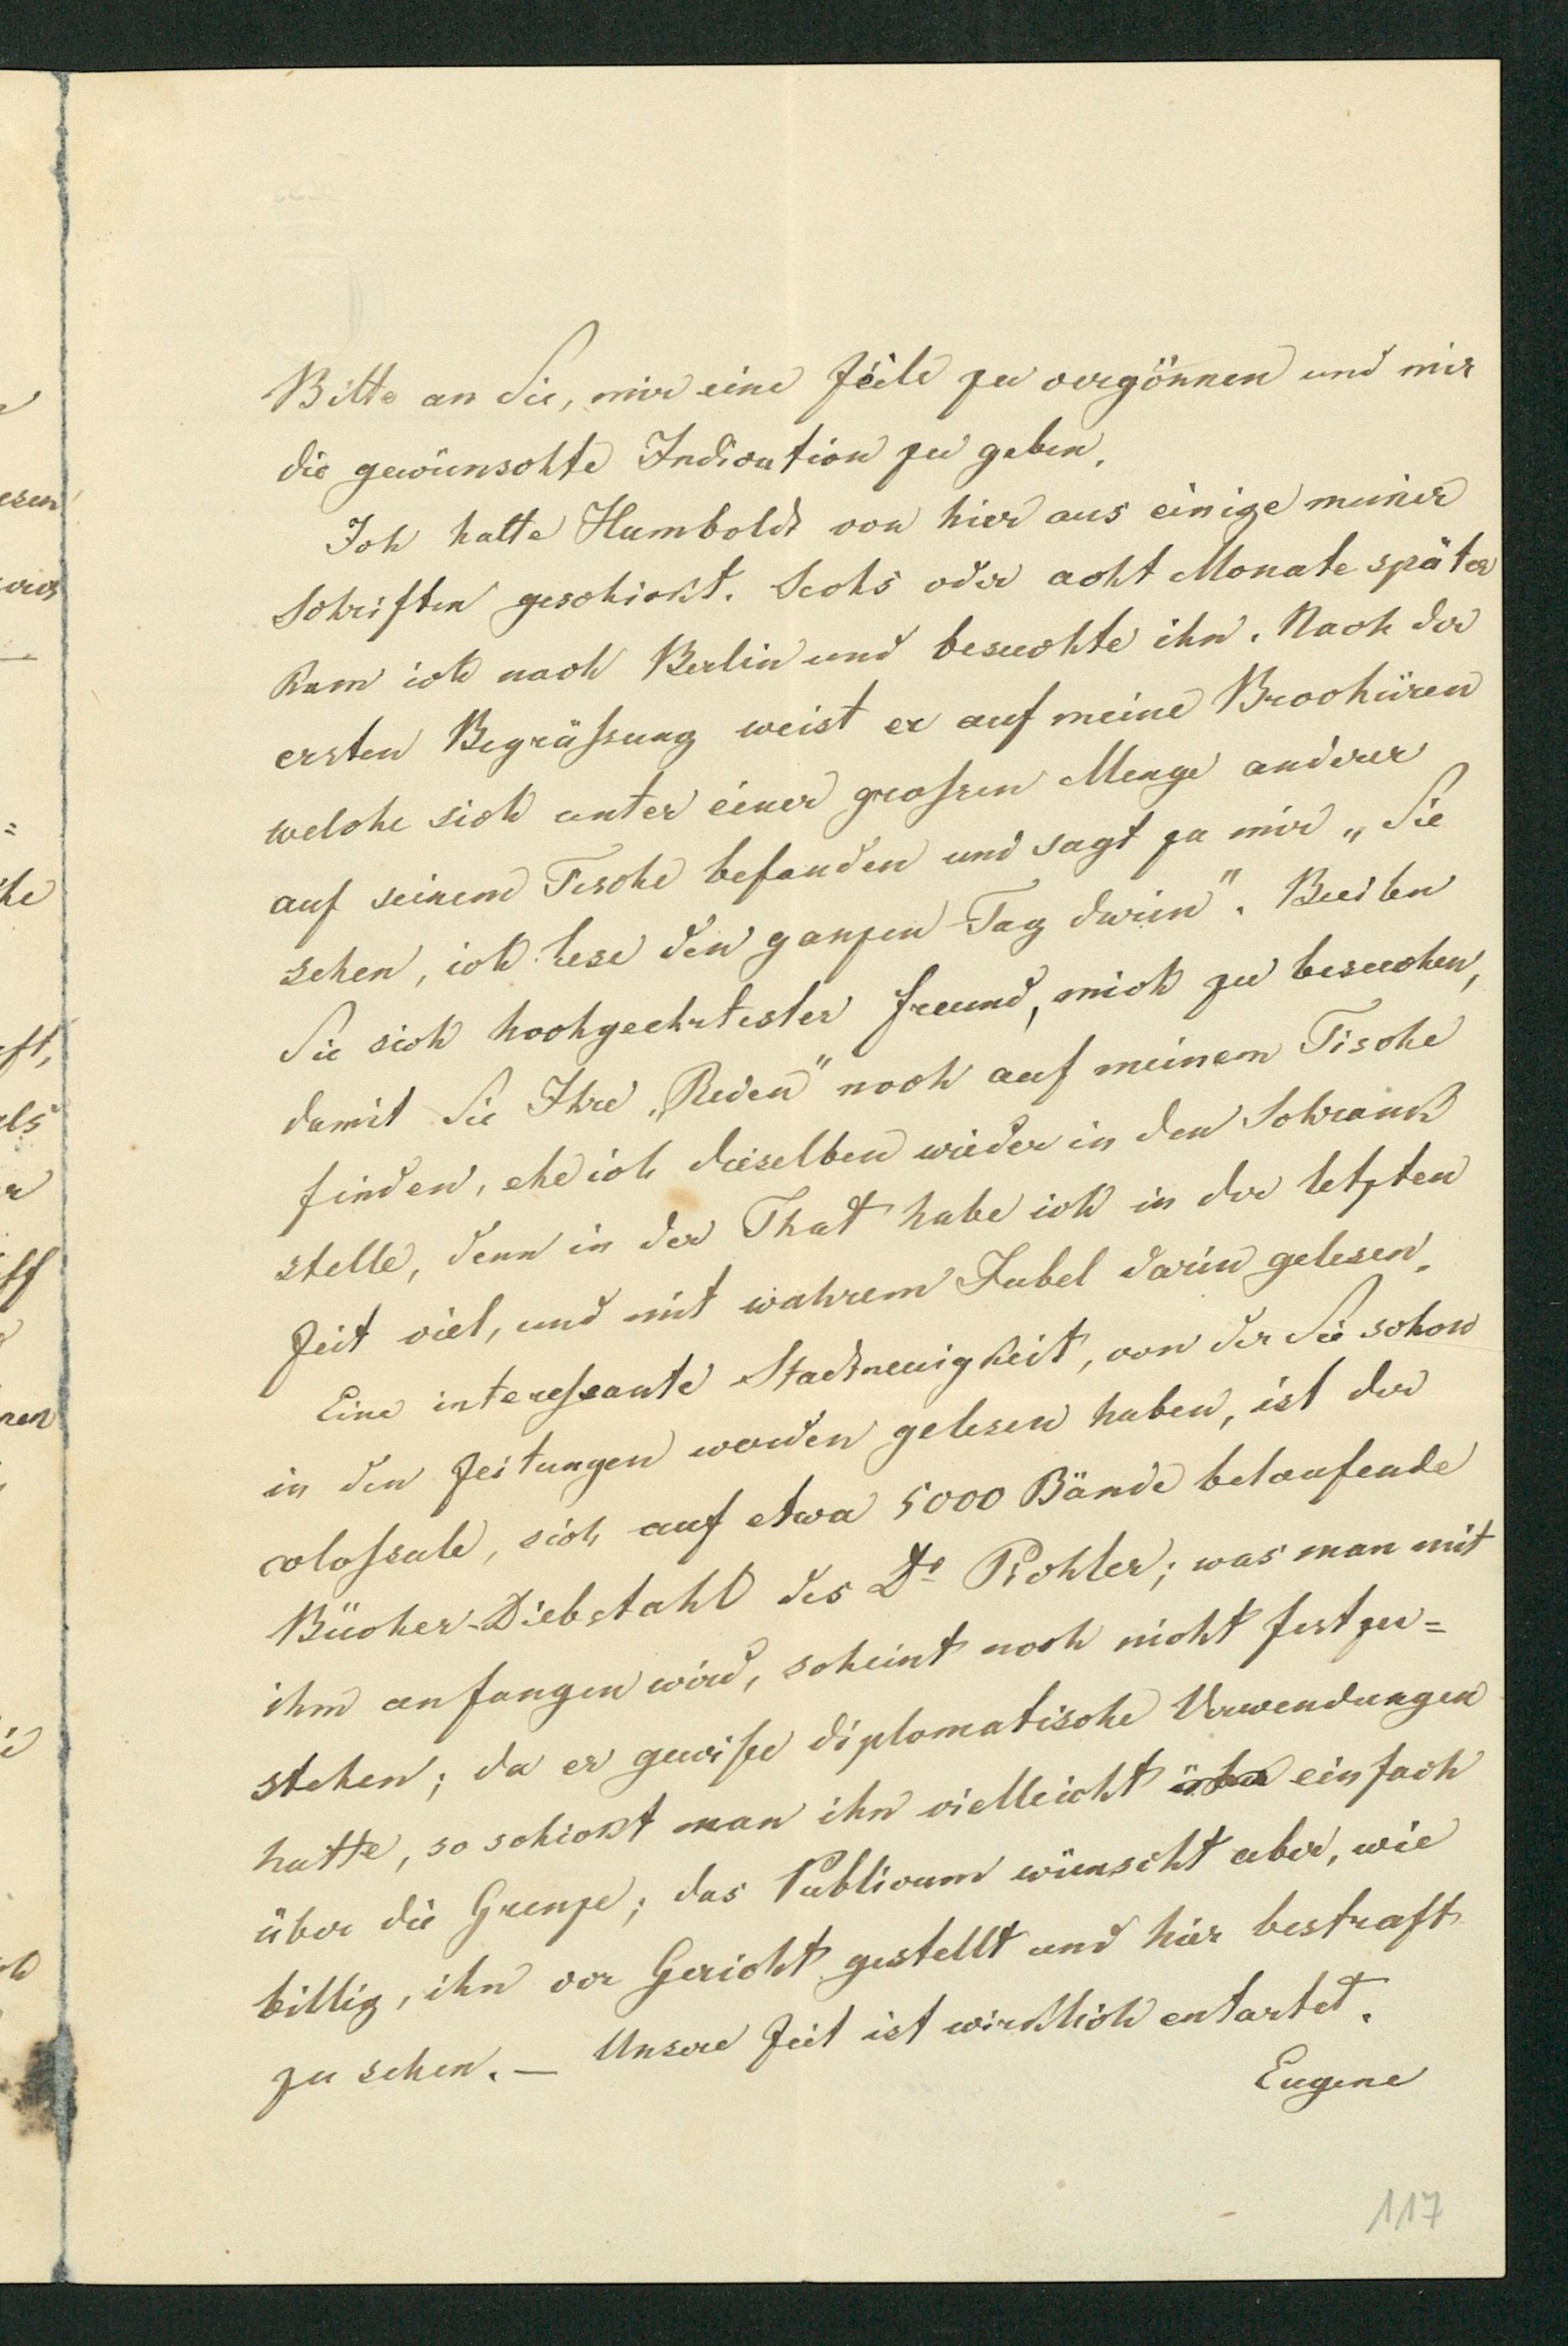 Bitte an Sie, mir eine Zeile zu vergönnen und mir
die gewünschte Indication zu geben.
Ich hatte Humboldt von hier aus einige meiner
Schriften geschickt. Sechs oder acht Monate später
kam ich nach Berlin und besuchte ihn. Nach der
ersten Begrüßung weist er auf meine Brochüren
welche sich unter einer großen Menge anderer
auf seinem Tische befanden und sagt zu mir „Sie
sehen, ich lese den ganzen Tag darin“. Beeilen
Sie sich hochgeehrtester Freund, mich zu besuchen,
damit Sie Ihre „Reden“ noch auf meinem Tische
finden, ehe ich dieselben wieder in den Schrank
stelle, denn in der That habe ich in der letzten
Zeit viel, und mit wahrem Jubel darin gelesen.
Eine interessante Stadtneuigkeit, von der Sie schon
in den Zeitungen werden gelesen haben, ist der
colossale, sich auf etwa 5000 Bände belaufende
Bücher-Diebstahl des Dr Pichler; was man mit
ihm anfangen wird, scheint noch nicht festzu=
stehen; da er gewisse diplomatische Verwendungen
hatte, so schickt man ihn vielleicht über einfach
über die Grenze; das Publicum wünscht aber, wie
billig, ihn vor Gericht gestellt und hier bestraft
zu sehen. — Unsere Zeit ist wirklich entartet.
Eugene
117
esen
he
ft,
als
ff
nen